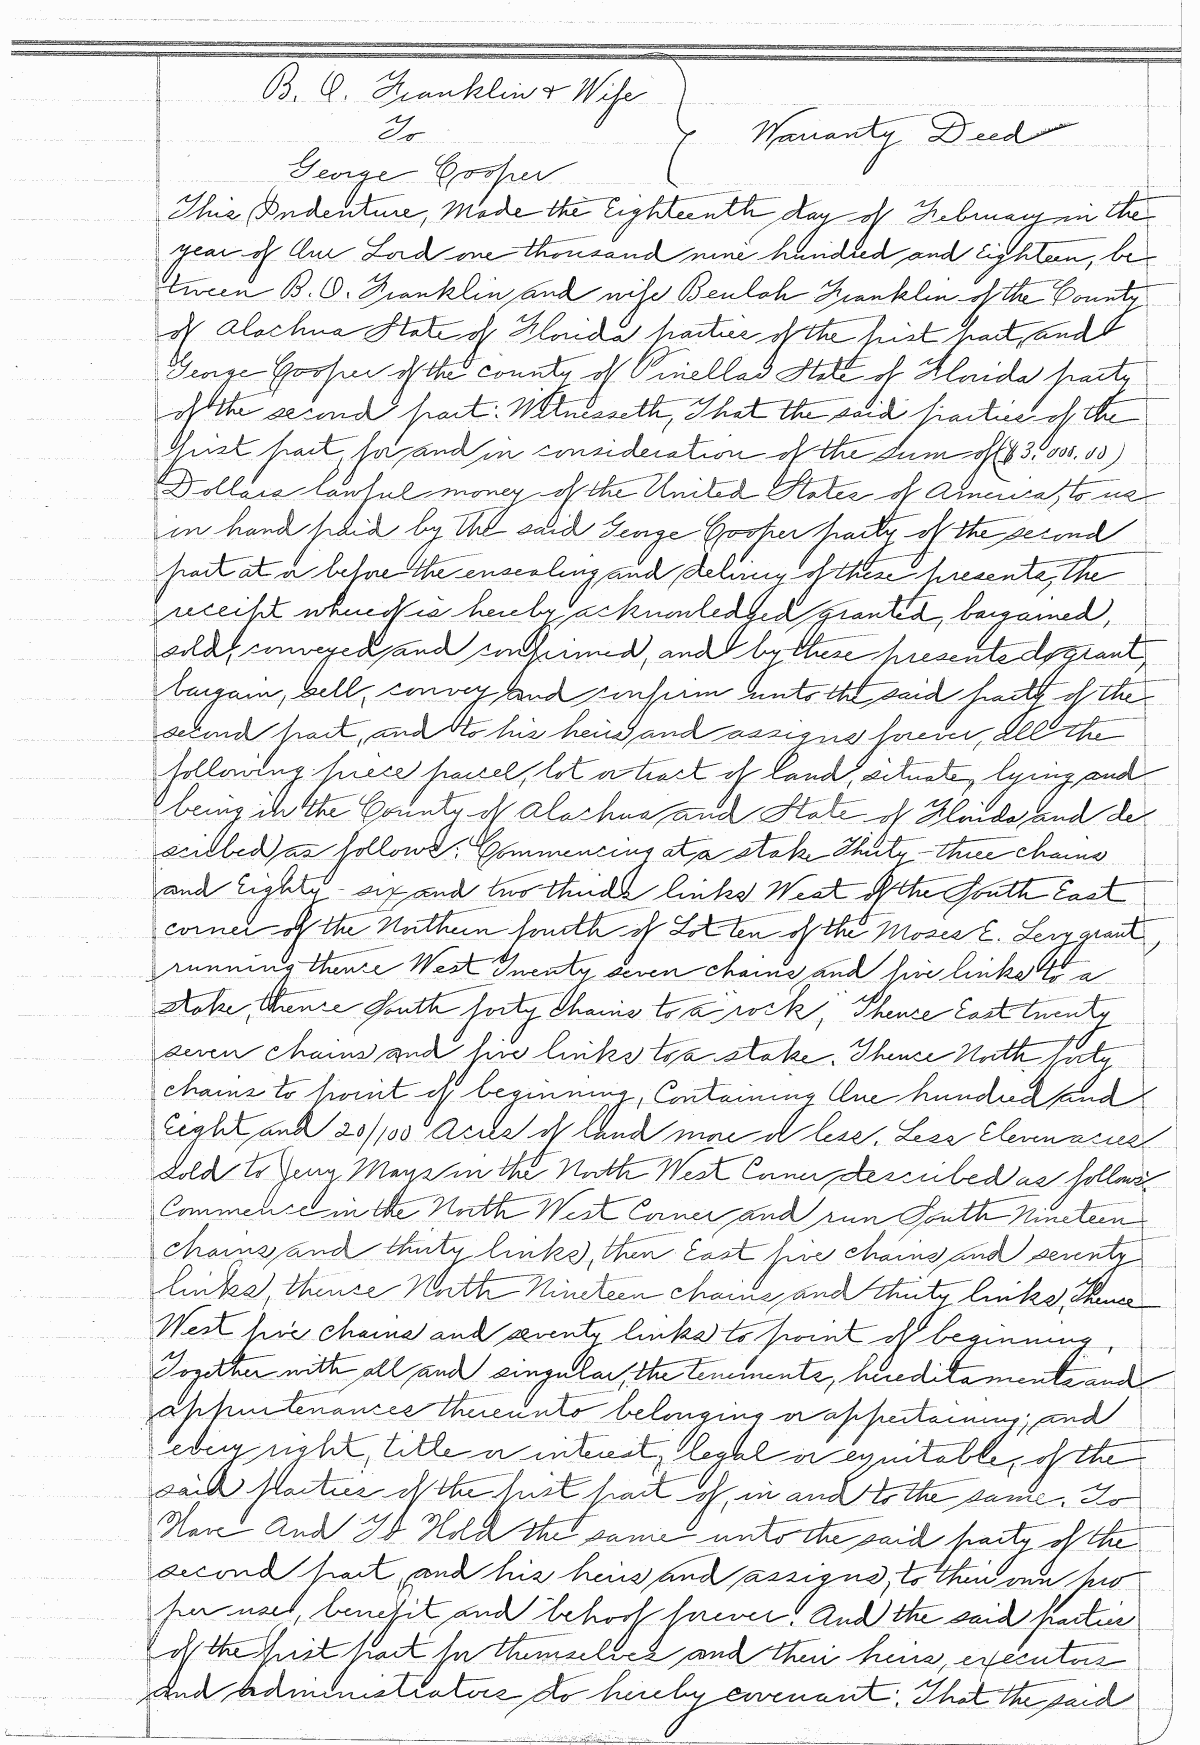 B. O. Franklin & Wife
To
Warranty Deed
George Cooper
This Indenture, Made the Eighteenth day of February in the
year of Our Lord one thousand nine hundred and Eighteen, be
tween B. O. Franklin and wife Beulah Franklin of the County
of Alachua State of Florida parties of the first part, and
George Cooper of the county of Pinellas State of Florida party
of the second part: Witnesseth, That the said parties of the
first part, for and in consideration of the sum of ($3,000.00)
Dollars lawful money of the United States of America, to us
in hand paid by the said George Cooper party of the second
part at or before the ensealing and delivery of these presents, the
receipt whereof is hereby acknowledged granted, bargained,
sold, conveyed and confirmed, and by these presents do grant,
bargain, sell, convey and confirm unto the said party of the
second part, and to his heirs and assigns forever, all the
following piece parcel, lot or tract of land, situate, lying and
being in the County of Alachua and State of Florida and de
scribed as follows: Commencing at a stake Thirty-three chains
and Eighty-six and two thirds links West of the South East
corner of the Northern fourth of Lot ten of the Moses E. Levy grant,
running thence West Twenty seven chains and five links to a
stake, thence South forty chains to a "rock," Thence East twenty
seven chains and five links to a stake. Thence North forty
chains to point of beginning, Containing One hundred and
Eight and 20/100 Acres of land more or less. Less Eleven acres
sold to Jerry Mays in the North West Corner described as follows:
Commence in the North West Corner and run South Nineteen
chains and thirty links, then East five chains and seventy
links, thence North Nineteen chains and thirty links, Thence
West five chains and seventy links to point of beginning,
Together with all and singular, the tenements, hereditaments and
appurtenances thereunto belonging or appertaining; and
every right, title or interest, legal or equitable, of the
said parties of the first part of, in and to the same. To
Have And To Hold the same unto the said party of the
second part, and his heirs and assigns, to their own pro
per use, benefit and behoof forever. And the said parties
of the first part for themselves and their heirs, executors
and administrators do hereby covenant: That the said